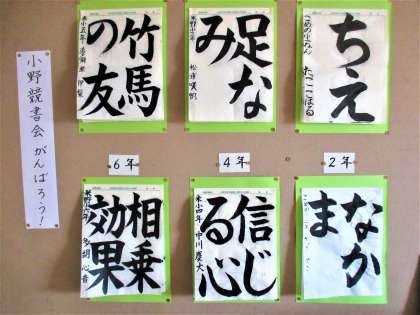 小野競書会がんばろう！
竹馬
の友
足な
み
ちえ
6年
4年
2年
相乗
効果
信じ
る心
なか
ま